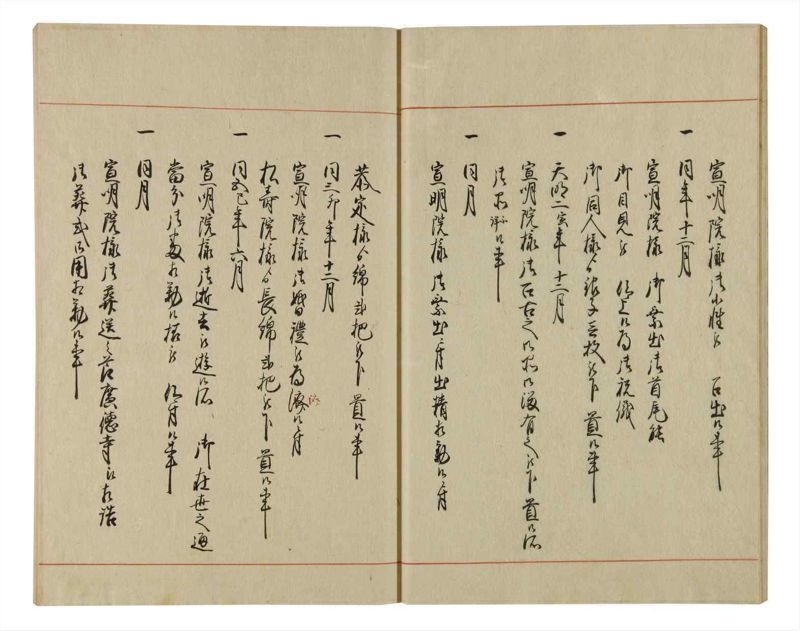 宣明院様御小姓被 召出候事
一 同年十二月
宣明院様 御家出御首尾能
御目見被 仰上候為御祝儀
御同人様ゟ銀子三枚被下置候事
一 天明二寅年十二月
宣明院様御召古之御 御 有之被下置候
御 候事
一 同月
宣明院様御家出ニ付出精相勤候ニ付
恭定様ゟ綿弐把被下置候事
一 同三卯年十二月
宣明院様御婚禮被為済候ニ付
松寿院様ゟ長綿弐把被下置候事
一 同五巳年六月
宣明院様御逝去被遊候 御在世之通
當分御 相勤候様被 仰付候事
一 同月
宣明院様御葬送之節廣徳寺江相詰
御葬式御用相勤候事